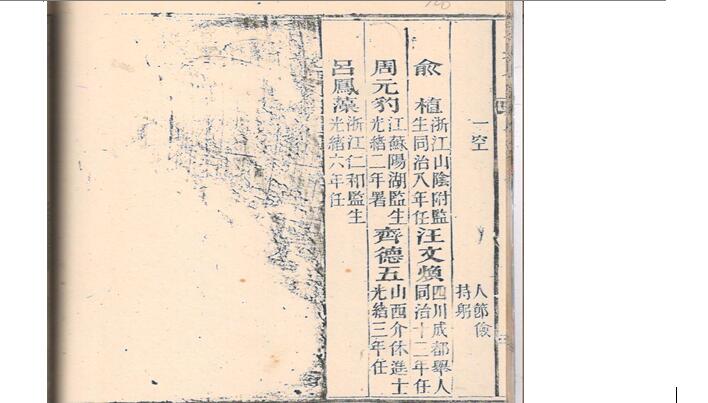 一空
人節儉
持躬
俞植 浙江山陰附監
生同治八年任
汪文煥 四川成都舉人
同治十二年任
周元豹 江蘇陽湖監生
光緒二年署
齊德五 山西介休進士
光緒三年任
呂鳳藻 浙江仁和監生
光緒六年任